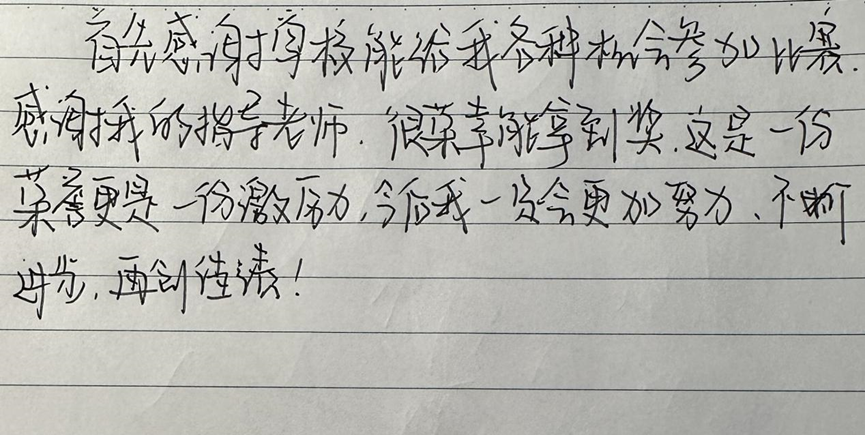 首先感谢学校能给我各种机会参加比赛.
感谢我的指导老师. 很荣幸能拿到奖.这是一份
荣誉更是一份激励,今后我一定会更加努力、不断
进步, 再创佳绩!